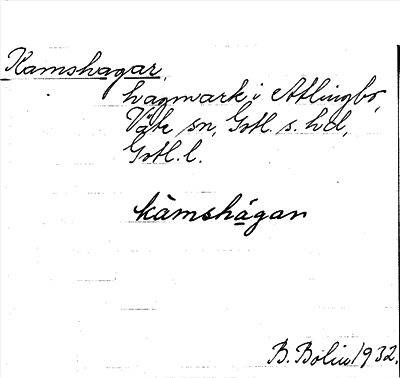 Kamshagar,
hagmark i Atlingbo,
Väte sn, Gotl. s. hd,
Gotl. l.
kàmshágar
B. Bolin 1932.